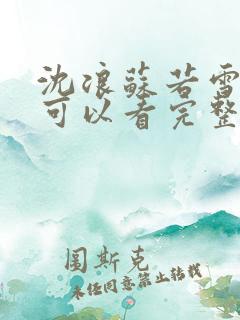 沈浪蘇若雪
可以看完整
圖斯克
未經同意禁止转载